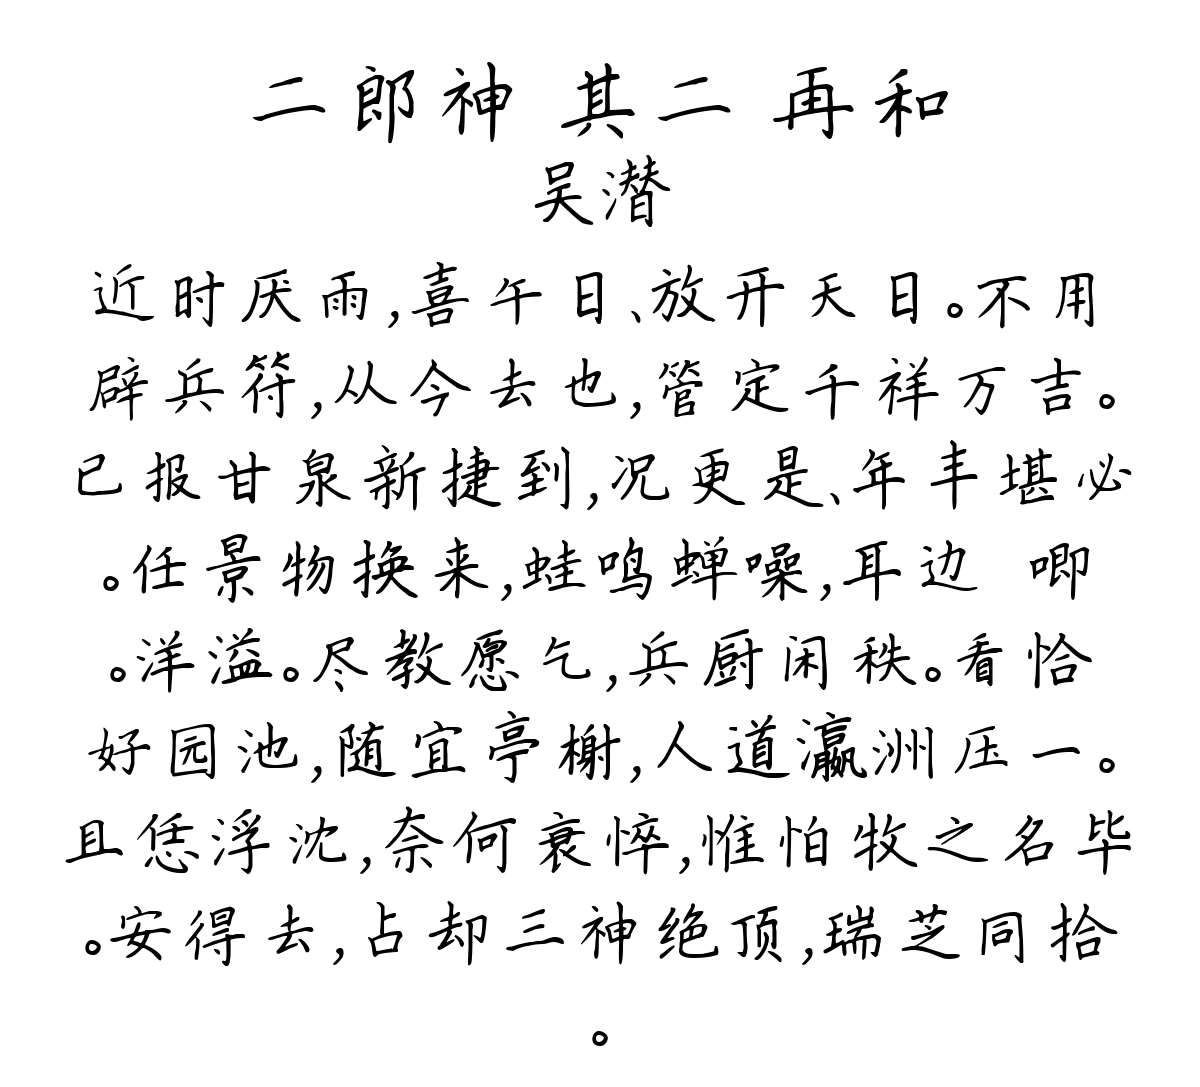 二郎神 其二 再和
吴潜
近时厌雨,喜午日、放开天日。不用
辟兵符,从今去也,管定千祥万吉。
已报甘泉新捷到,况更是、年丰堪必
。任景物换来,蛙鸣蝉噪,耳边 唧
。洋溢。尽教愿乞,兵厨闲秩。看恰
好园池,随宜亭榭,人道瀛洲压一。
且恁浮沈,奈何衰悴,惟怕牧之名毕
。安得去,占却三神绝顶,瑞芝同拾
。